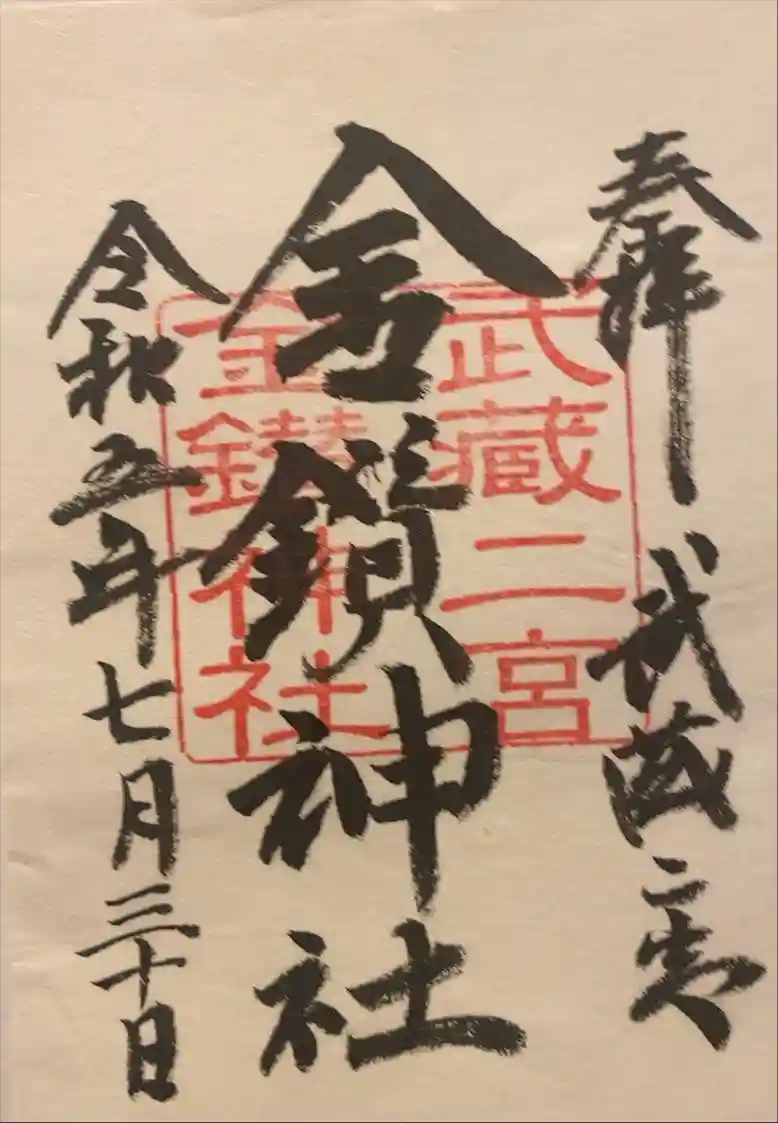 奉拝 武蔵二宮
金鑚神社
令和五年七月三十日
武蔵二宮
金鑚神社